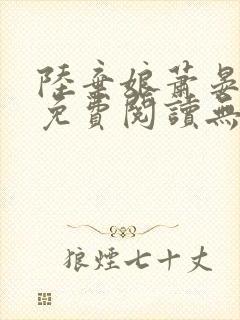 陸棄娘蕭晏
免費閱讀無
狼煙七十丈